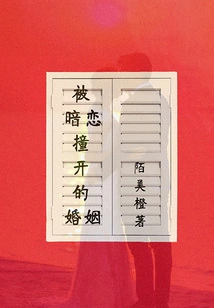 被
暗恋
撞
开
的
婚姻
陌美橙著